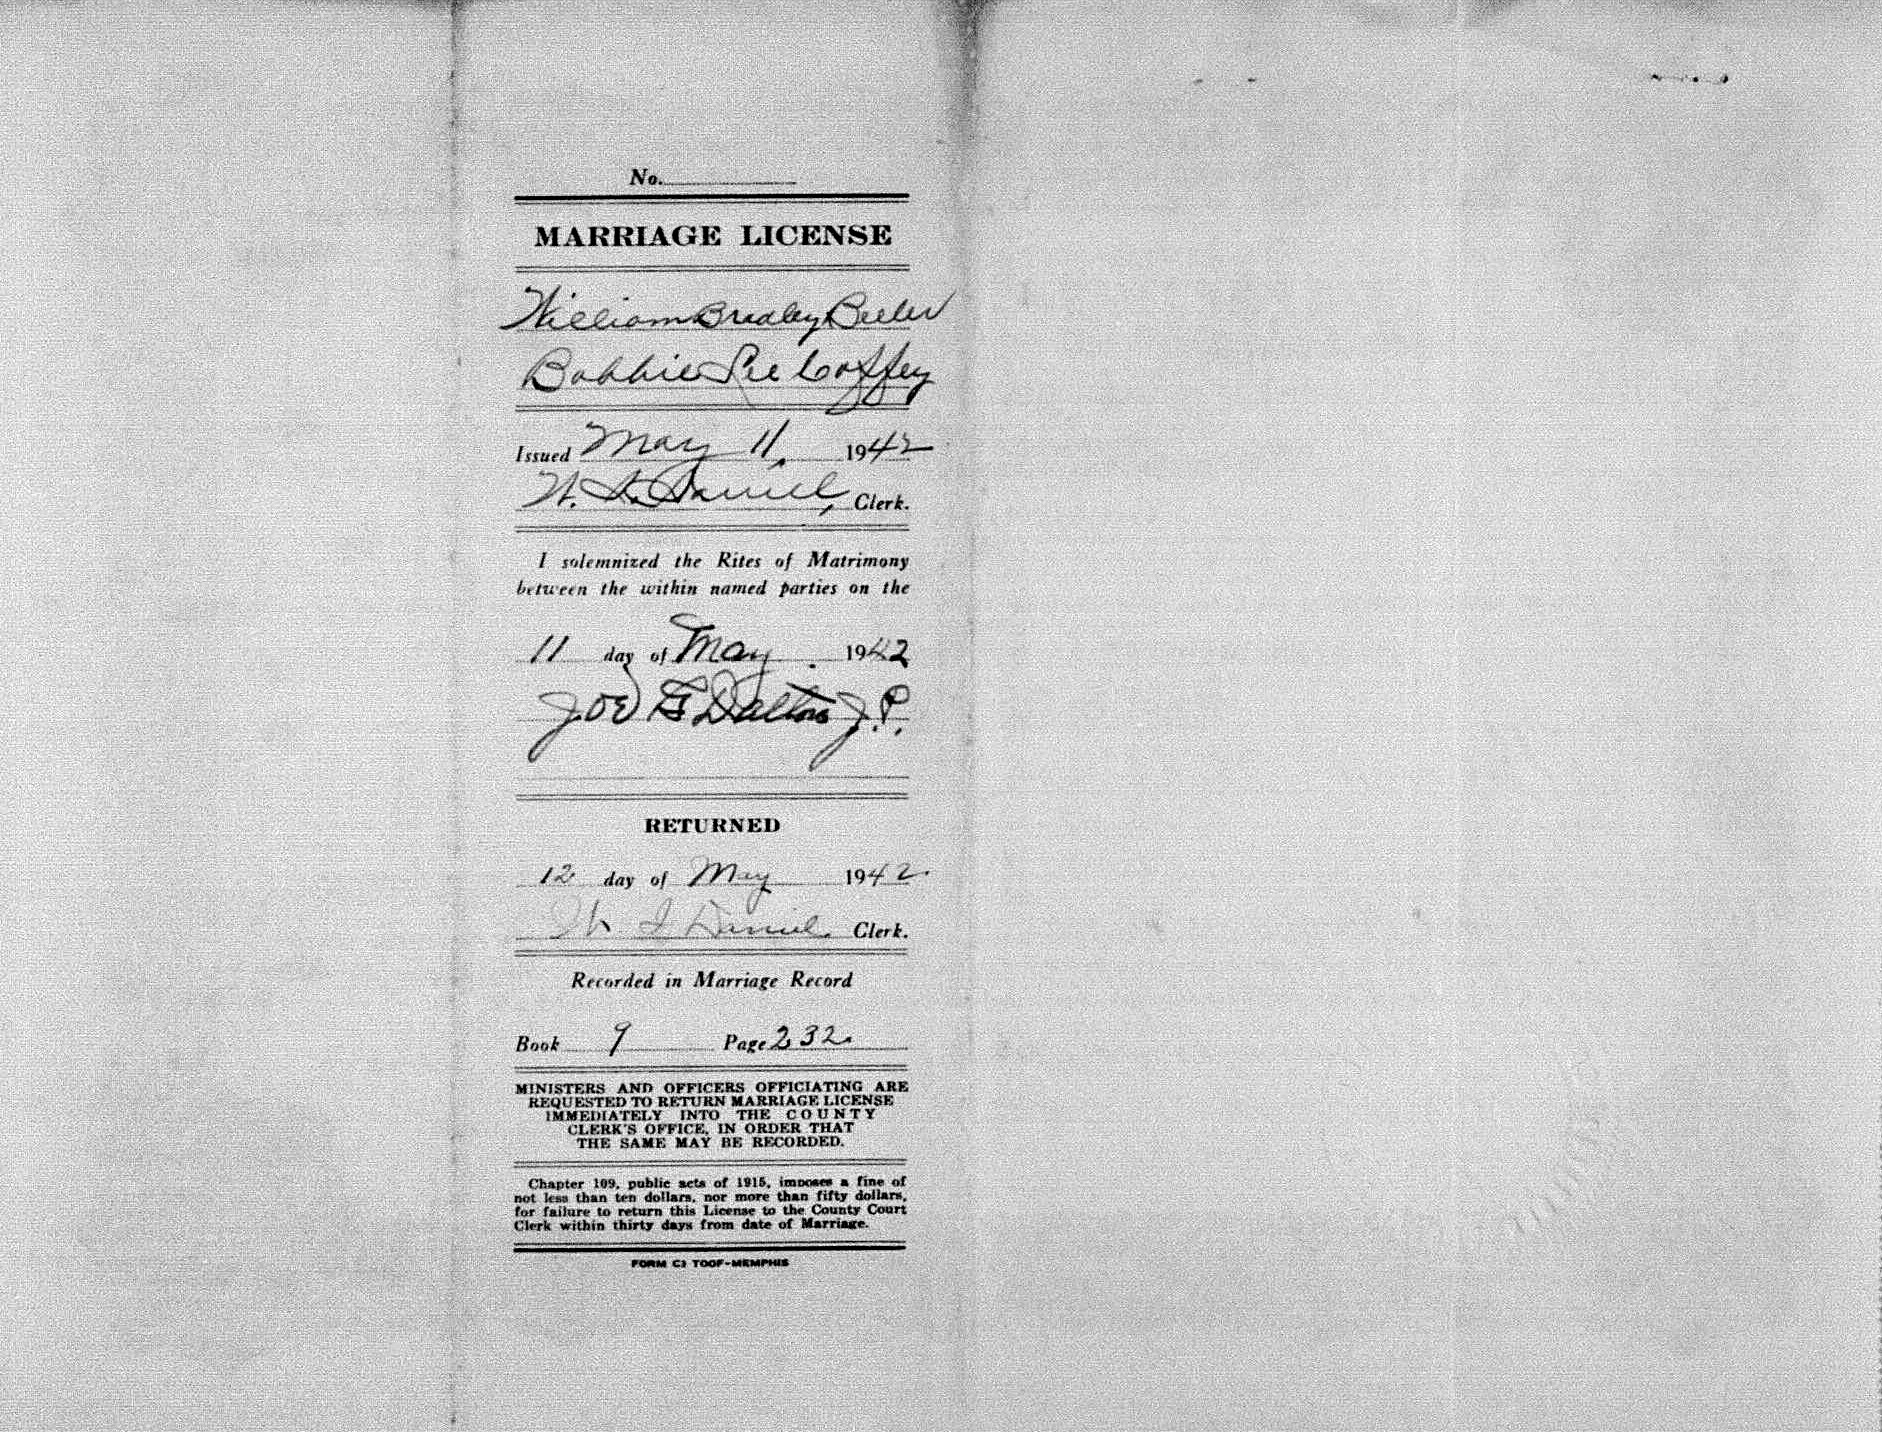 No.
MARRIAGE LICENSE
William Bradley Beeler
Bobbie Lee Coffey
Issued May 11, 1942
Daniel, Clerk.
I solemnized the Rites of Matrimony
between the within named parties on the
11 day of May. 1942
Joe G Dalton J.P.
RETURNED
12 day of May 1942.
Daniel. Clerk.
Recorded in Marriage Record
Book 9 Page 232.
MINISTERS AND OFFICERS OFFICIATING ARE
REQUESTED TO RETURN MARRIAGE LICENSE
IMMEDIATELY INTO THE COUNTY
CLERK'S OFFICE, IN ORDER THAT
THE SAME MAY BE RECORDED.
Chapter 109, public acts of 1915, imposes a fine of
not less than ten dollars, nor more than fifty dollars,
for failure to return this License to the County Court
Clerk within thirty days from date of Marriage.
FORM C3 TOOF-MEMPHIS